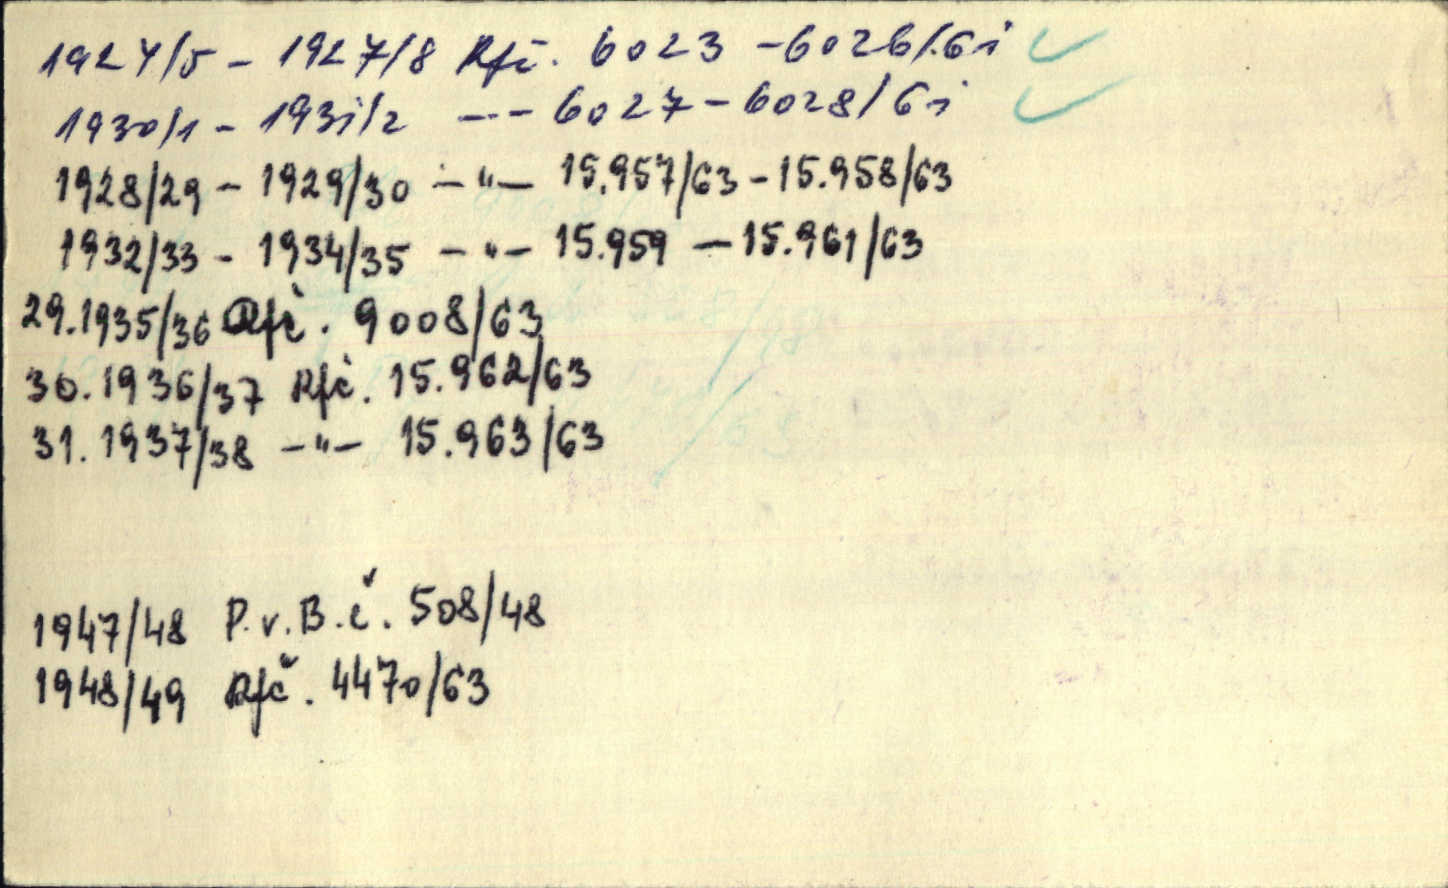 1924/5 - 1927/8 Rfč. 6023 - 6026/61
1930/1 - 1931/2 -"- 6027 - 6028/61
1928/29 - 1929/30 -"- 15.957/63 - 15.958/63
1932/33 - 1934/35 -"- 15.959 - 15.961/63
29. 1935/36 Rfč. 9008/63
30. 1936/37 Rfč. 15.962/63
31. 1937/38 -"- 15.963/63
1947/48 P.v.B.č. 508/48
1948/49 Rfč. 4470/63